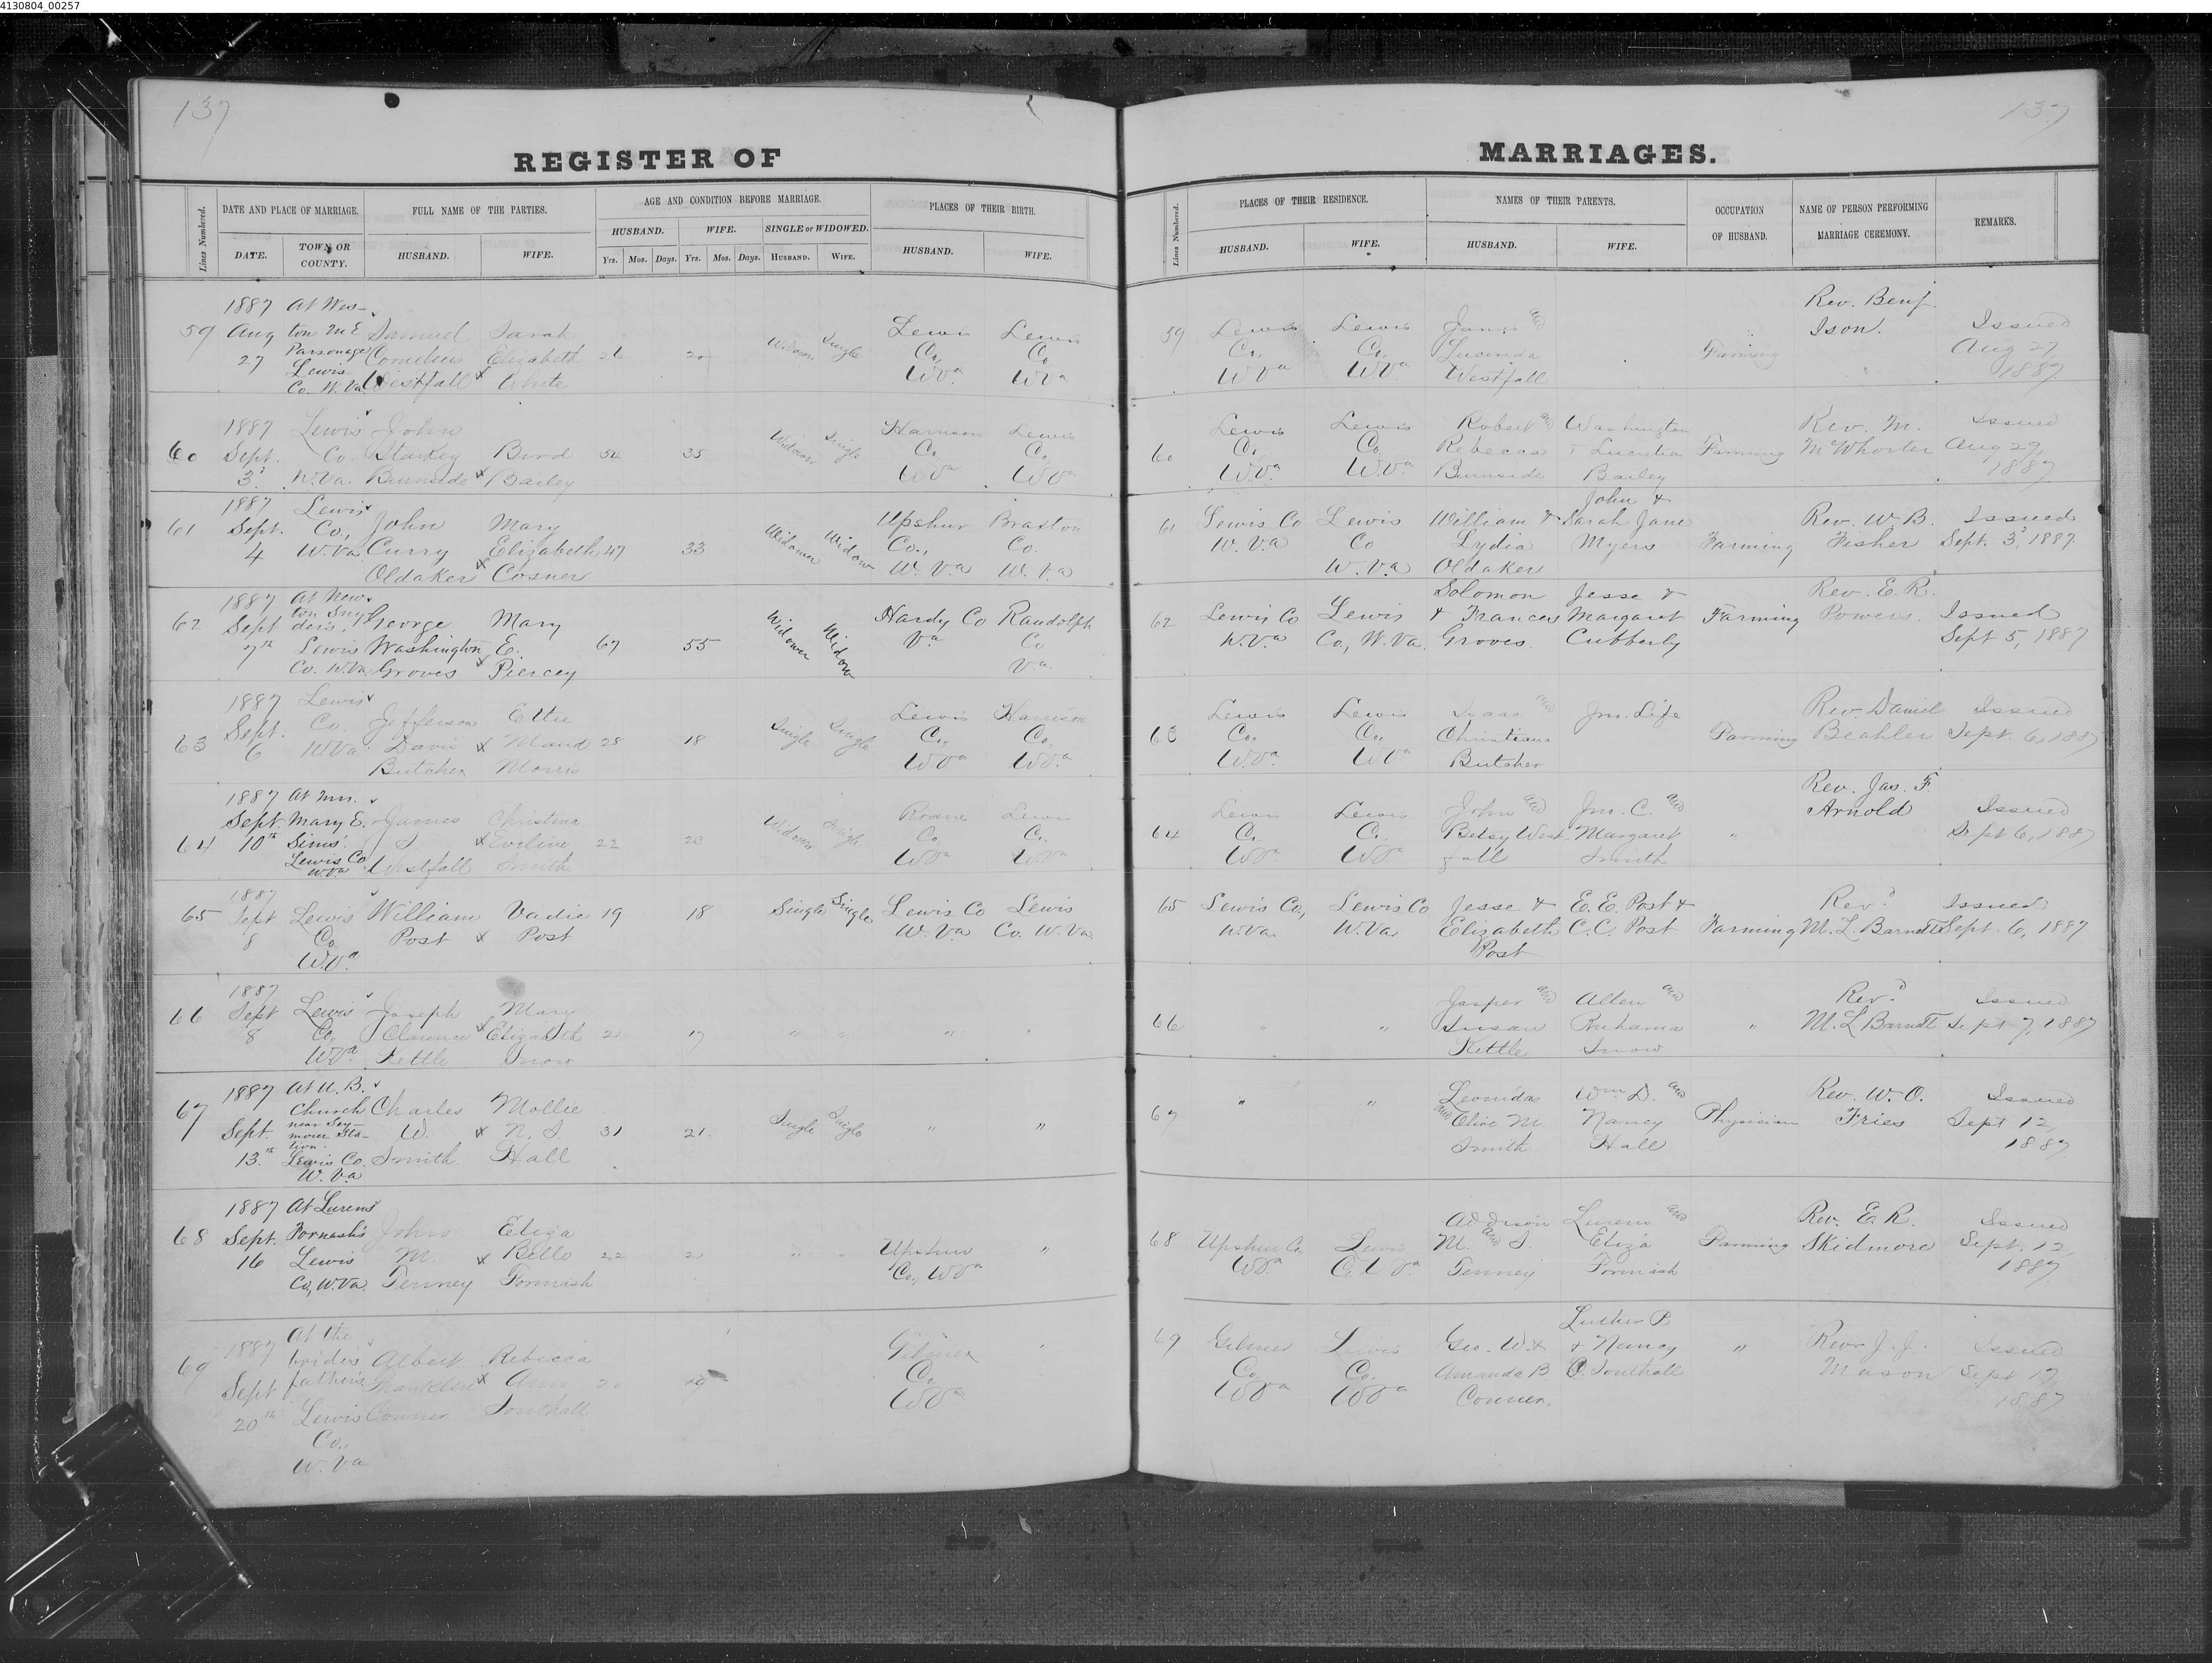 4130804_00257
137
REGISTER OF
Lines Numbered.
DATE AND PLACE OF MARRIAGE.
FULL NAME OF THE PARTIES.
AGE AND CONDITION BEFORE MARRIAGE.
PLACES OF THEIR BIRTH.
HUSBAND.
WIFE.
SINGLE or WIDOWED.
DATE.
TOWN OR COUNTY.
HUSBAND.
WIFE.
Yrs. Mos. Days. Yrs. Mos. Days. HUSBAND. WIFE.
HUSBAND.
WIFE.
1887 At Wes-
59 Aug ton M E Samuel Sarah Lewis Lewis
27 Parsonage Cornelius Elizabeth 20 Widower Single Co, Co,
Lewis Westfall x White W Va W Va
Co. W. Va
1887 Lewis John Harrison Lewis
60 Sept. Co. Starkey Bird 54 35 Widower Single Co, Co,
3d W. Va. Burnside x Bailey W Va W Va
1887 Lewis
61 Sept. Co., John Mary Upshur Braxton
4 W. Va Curry Elizabeth 47 33 Widower Widow Co., Co.
Oldaker x Cosner W. Va W. Va
1887 At New-
62 Sept ton Sny- George Mary Hardy Co Randolph
7th der's, Washington E. 67 55 Widower Widow Va. Co
Lewis Groves x Piercey Va.
Co. W. Va
1887 Lewis
63 Sept. Co. Jefferson Ettie Lewis Harrison
6 W Va. Davis x Maud 28 18 Single Single Co., Co,
Butcher Morris W Va W Va.
1887 At Mrs.
64 Sept. Mary E. James Christina Roane Lewis
10th Sims' x Eveline 22 23 Widower Single Co, C.
Lewis Co Westfall Smith W Va W Va
W Va
1887
65 Sept Lewis William Vadie 19 18 Single Single Lewis Co Lewis
8 Co. Post x Post W. Va Co. W. Va.
W. Va
1887
66 Sept Lewis Joseph Mary
8 Co, Clarence x Elizabeth 21 17 " " " "
W Va Kettle Snow
1887 At U. B.
67 Church Charles Mollie
Sept. near Sey- W. x N. J. 31 21 Single Single " "
13.th mour Sta-
tion. Smith Hall
Lewis Co.
W. Va
1887 At Lurens
68 Sept. Fornash's John Eliza Upshur "
16 Lewis M. x Belle 22 21 " " Co., W Va
Co, W. Va. Tenney Formish
At the
69 1887 bride's Albert Rebecca Gilmer
Sept father's Franklin x Ann 20 19 Co.
20th Lewis Conner Southall W Va
Co.,
W. Va
137
MARRIAGES.
Lines Numbered.
PLACES OF THEIR RESIDENCE.
NAMES OF THEIR PARENTS.
OCCUPATION OF HUSBAND.
NAME OF PERSON PERFORMING MARRIAGE CEREMONY.
REMARKS.
HUSBAND.
WIFE.
HUSBAND.
WIFE.
59 Lewis Lewis James and Rev. Benj. Issued
Co, Co, Lucinda Farming Ison. Aug 27,
W Va W. Va Westfall 1887
60 Lewis Lewis Robert and Washington Rev. M. Issued
Co, Co Rebecca & Lucretia Farming McWhorter Aug 29,
W. Va. W. Va Burnside Bailey 1887
John &
61 Lewis Co Lewis William & Sarah Jane Rev. W. B. Issued
W. Va Co Lydia Myers Farming Fisher Sept. 3d, 1887.
W. Va Oldaker
Solomon Jesse & Rev. E. R.
62 Lewis Co Lewis & Frances Margaret Farming Powers. Issued
W. Va. Co., W. Va. Groves. Cubberly Sept 5, 1887
63 Lewis Lewis Isaac and Jno. Life Rev. Daniel Issued
Co. Co. Christiana Farming Beahler Sept. 6, 1887
W. Va. W Va Butcher
64 Lewis Lewis John and Jno. C. and Rev. Jas. F Issued
Co. C. Betsy West- Margaret " Arnold Sept 6, 1887
W Va W Va fall Smith
65 Lewis Co, Lewis Co Jesse & E. E. Post & Rev.d Issued
W. Va. W. Va. Elizabeth C. C. Post Farming M. L. Barnett Sept. 6, 1887
Post
66 " " Jasper and Allen and Rev.d Issued
Susan Ruhama " M. L Barnett Sept 7, 1887
Kettle Snow
67 " " Leonidas Wm D. and Rev. W. O. Issued
and Olive M Nancy Physician Fries Sept 12,
Smith Hall 1887
68 Upshur Co, Lewis Addison Lurens and Rev. E. R. Issued
W Va. C. W Va. M. and J Eliza Farming Skidmore Sept. 12,
Tenney Formish 1887
Luther P
69 Gilmer Lewis Geo. W. & & Nancy " Rev. J. J. Issued
Co, Co. Amanda B C. Southall Mason Sept 17,
W Va W Va Conner. 1887